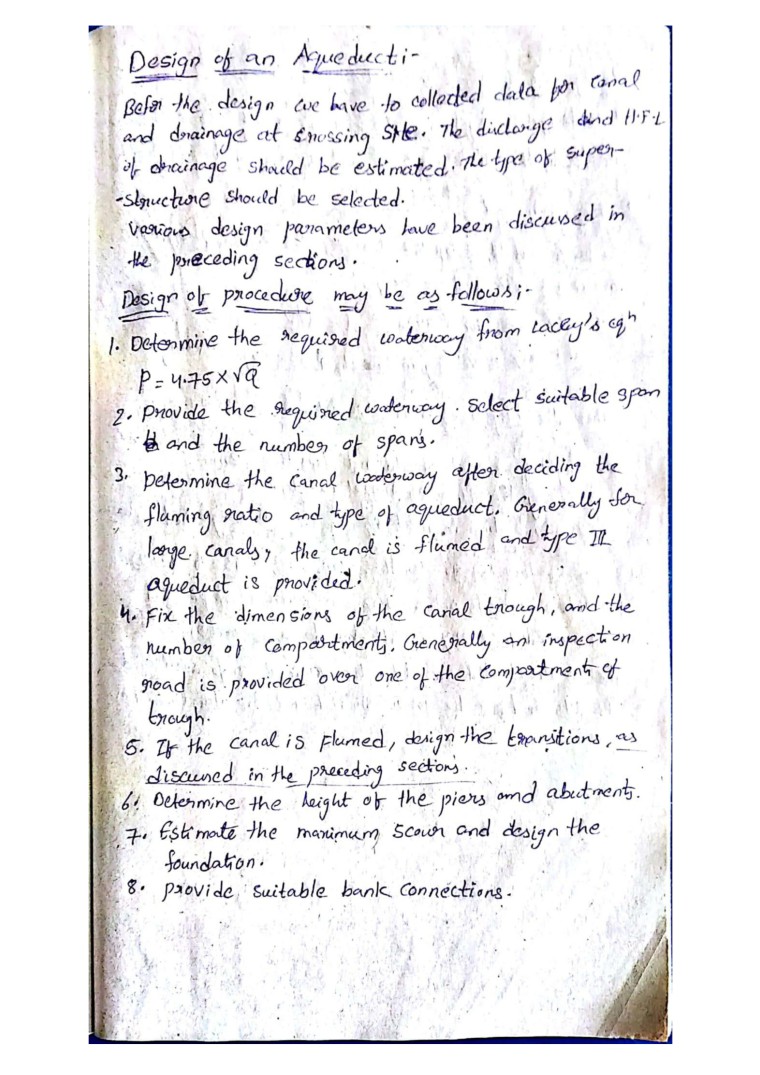 Design of an Aqueduct:-
Befor the design we have to collected data for Canal
and drainage at Crossing Site. The dischange and H.F.L
of drainage should be estimated. The type of super-
-structure should be selected.
Various design parameters have been discussed in
the preceding sections.
Design of procedure may be as follows;-
1. Determine the required waterway from Lacey's eqn
P = 4.75 x √Q
2. Provide the required waterway. Select suitable span
and the number of spans.
3. Determine the Canal waterway after deciding the
fluming ratio and type of aqueduct. Generally for
large canals, the canal is flumed and type III
aqueduct is provided.
4. Fix the dimensions of the Canal trough, and the
number of Compartments. Generally an inspection
road is provided over one of the Compartment of
trough.
5. If the canal is Flumed, design the transitions, as
discussed in the preceding sections.
6. Determine the height of the piers and abutments.
7. Estimate the maximum Scour and design the
foundation.
8. provide suitable bank Connections.